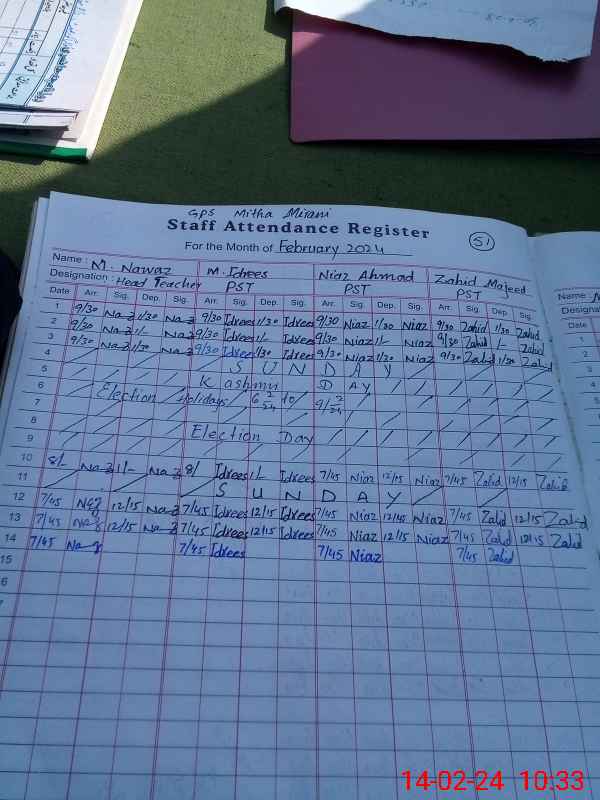 GPS Mitha Mirani
Staff Attendance Register
For the Month of February 2024
51
Name: M. Nawaz M. Idrees Niaz Ahmad Zahid Majeed
Designation: Head Teacher PST PST PST
Date Arr. Sig. Dep. Sig. Arr. Sig. Dep. Sig. Arr. Sig. Dep. Sig. Arr. Sig. Dep. Sig.
1 9/30 Naz 1/30 Naz 9/30 Idrees 1/30 Idrees 9/30 Niaz 1/30 Niaz 9/30 Zahid 1/30 Zahid
2 9/30 Naz 1/- Naz 9/30 Idrees 1/- Idrees 9/30 Niaz 1/- Niaz 9/30 Zahid 1/- Zahid
3 9/30 Naz 1/30 Naz 9/30 Idrees 1/30 Idrees 9/30 Niaz 1/30 Niaz 9/30 Zahid 1/30 Zahid
4 SUNDAY
5 Kashmir DAY
6 Election Holidays 6 2/24 to 9/2/24
7
8 Election Day
9
10 8/- Naz 1/- Naz 8/ Idrees 1/- Idrees 7/45 Niaz 12/15 Niaz 7/45 Zahid 12/15 Zahid
11 SUNDAY
12 7/45 Naz 12/15 Naz 7/45 Idrees 12/15 Idrees 7/45 Niaz 12/45 Niaz 7/45 Zahid 12/15 Zahid
13 7/45 Naz 12/15 Naz 7/45 Idrees 12/15 Idrees 7/45 Niaz 12/15 Niaz 7/45 Zahid 12/15 Zahid
14 7/45 Naz 7/45 Idrees 7/45 Niaz 7/45 Zahid
15
14-02-24 10:33